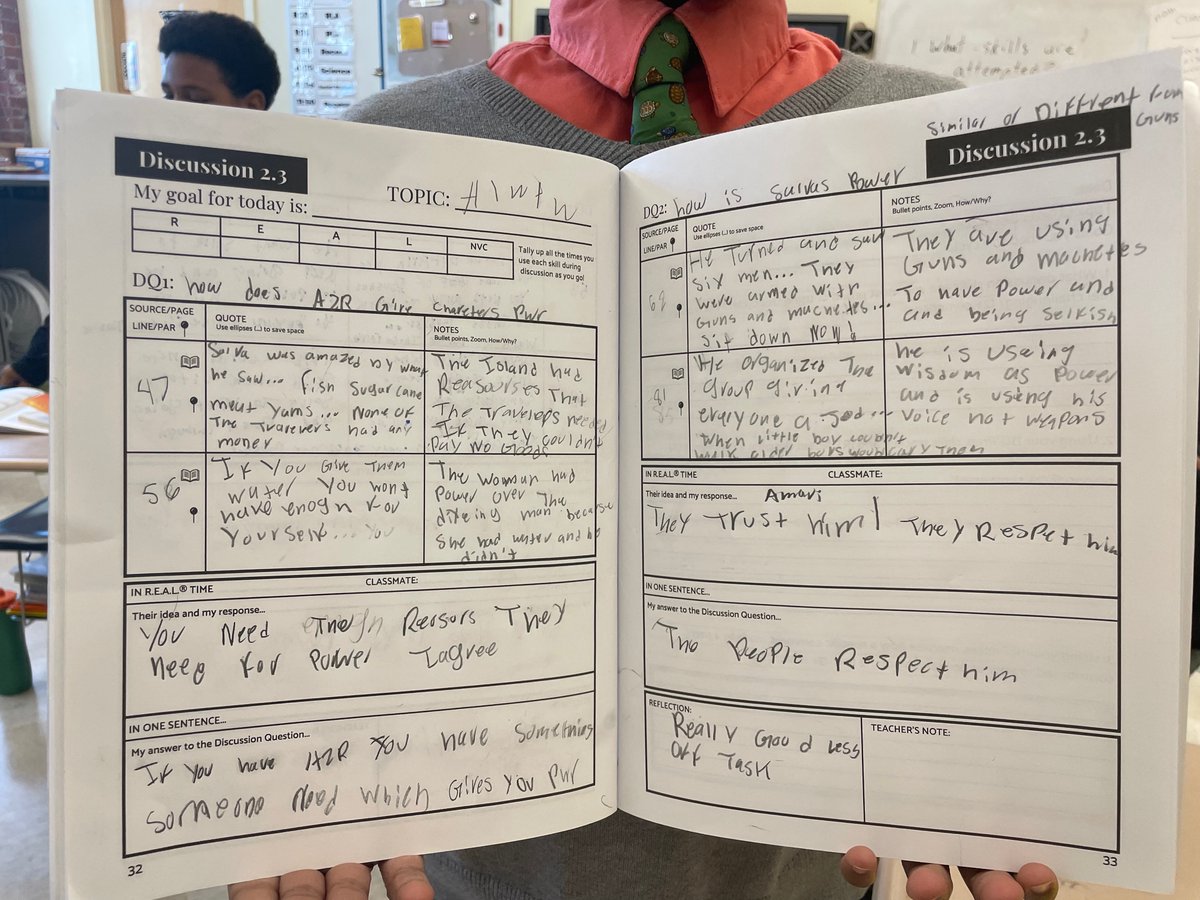 I What skills are
attempted?
Discussion 2.3
My goal for today is:
TOPIC: A1wtw
R E A L NVC
Tally up all the times you
use each skill during
discussion as you go!
DQ1: how does A2R Give chareters Pwr
SOURCE/PAGE
LINE/PAR
QUOTE
Use ellipses (...) to save space
NOTES
Bullet points, Zoom, How/Why?
47
Salva was amazed by what
he saw... fish sugar cane
meat yams... None of
The Travelers had any
money
The Island had
Reasourses That
The Travelers needed
If They couldnt
Pay No Goods
56
If You Give Them
water You wont
have enogh for
Yourself... You
The Woman had
Power over The
diteing man because
She had water and he
didn't
IN R.E.A.L.® TIME
CLASSMATE:
Their idea and my response...
You Need Reasors They
Need for Power I agree
IN ONE SENTENCE...
My answer to the Discussion Question...
If You have A2R You have something
someone need which Gives You Pwr
32
Similar or Diffrent from
Guns
Discussion 2.3
DQ2: how is salvas Power
SOURCE/PAGE
LINE/PAR
QUOTE
Use ellipses (...) to save space
NOTES
Bullet points, Zoom, How/Why?
68
He Turned and saw
six men... They
were armed with
Guns and machetes...
Sit down NOW!
They are using
Guns and machetes
To have Power and
and being selfish
81
He organized The
group giving
everyone a Job...
when little boy couldn't
walk older boys would carry Them
he is useing
Wisdom as Power
and is using his
voice not weapons
IN R.E.A.L.® TIME
CLASSMATE:
Their idea and my response...
Amari
They Trust him! They Respect him
IN ONE SENTENCE...
My answer to the Discussion Question...
The People Respect him
REFLECTION:
Really Good less
Off Task
TEACHER'S NOTE:
33